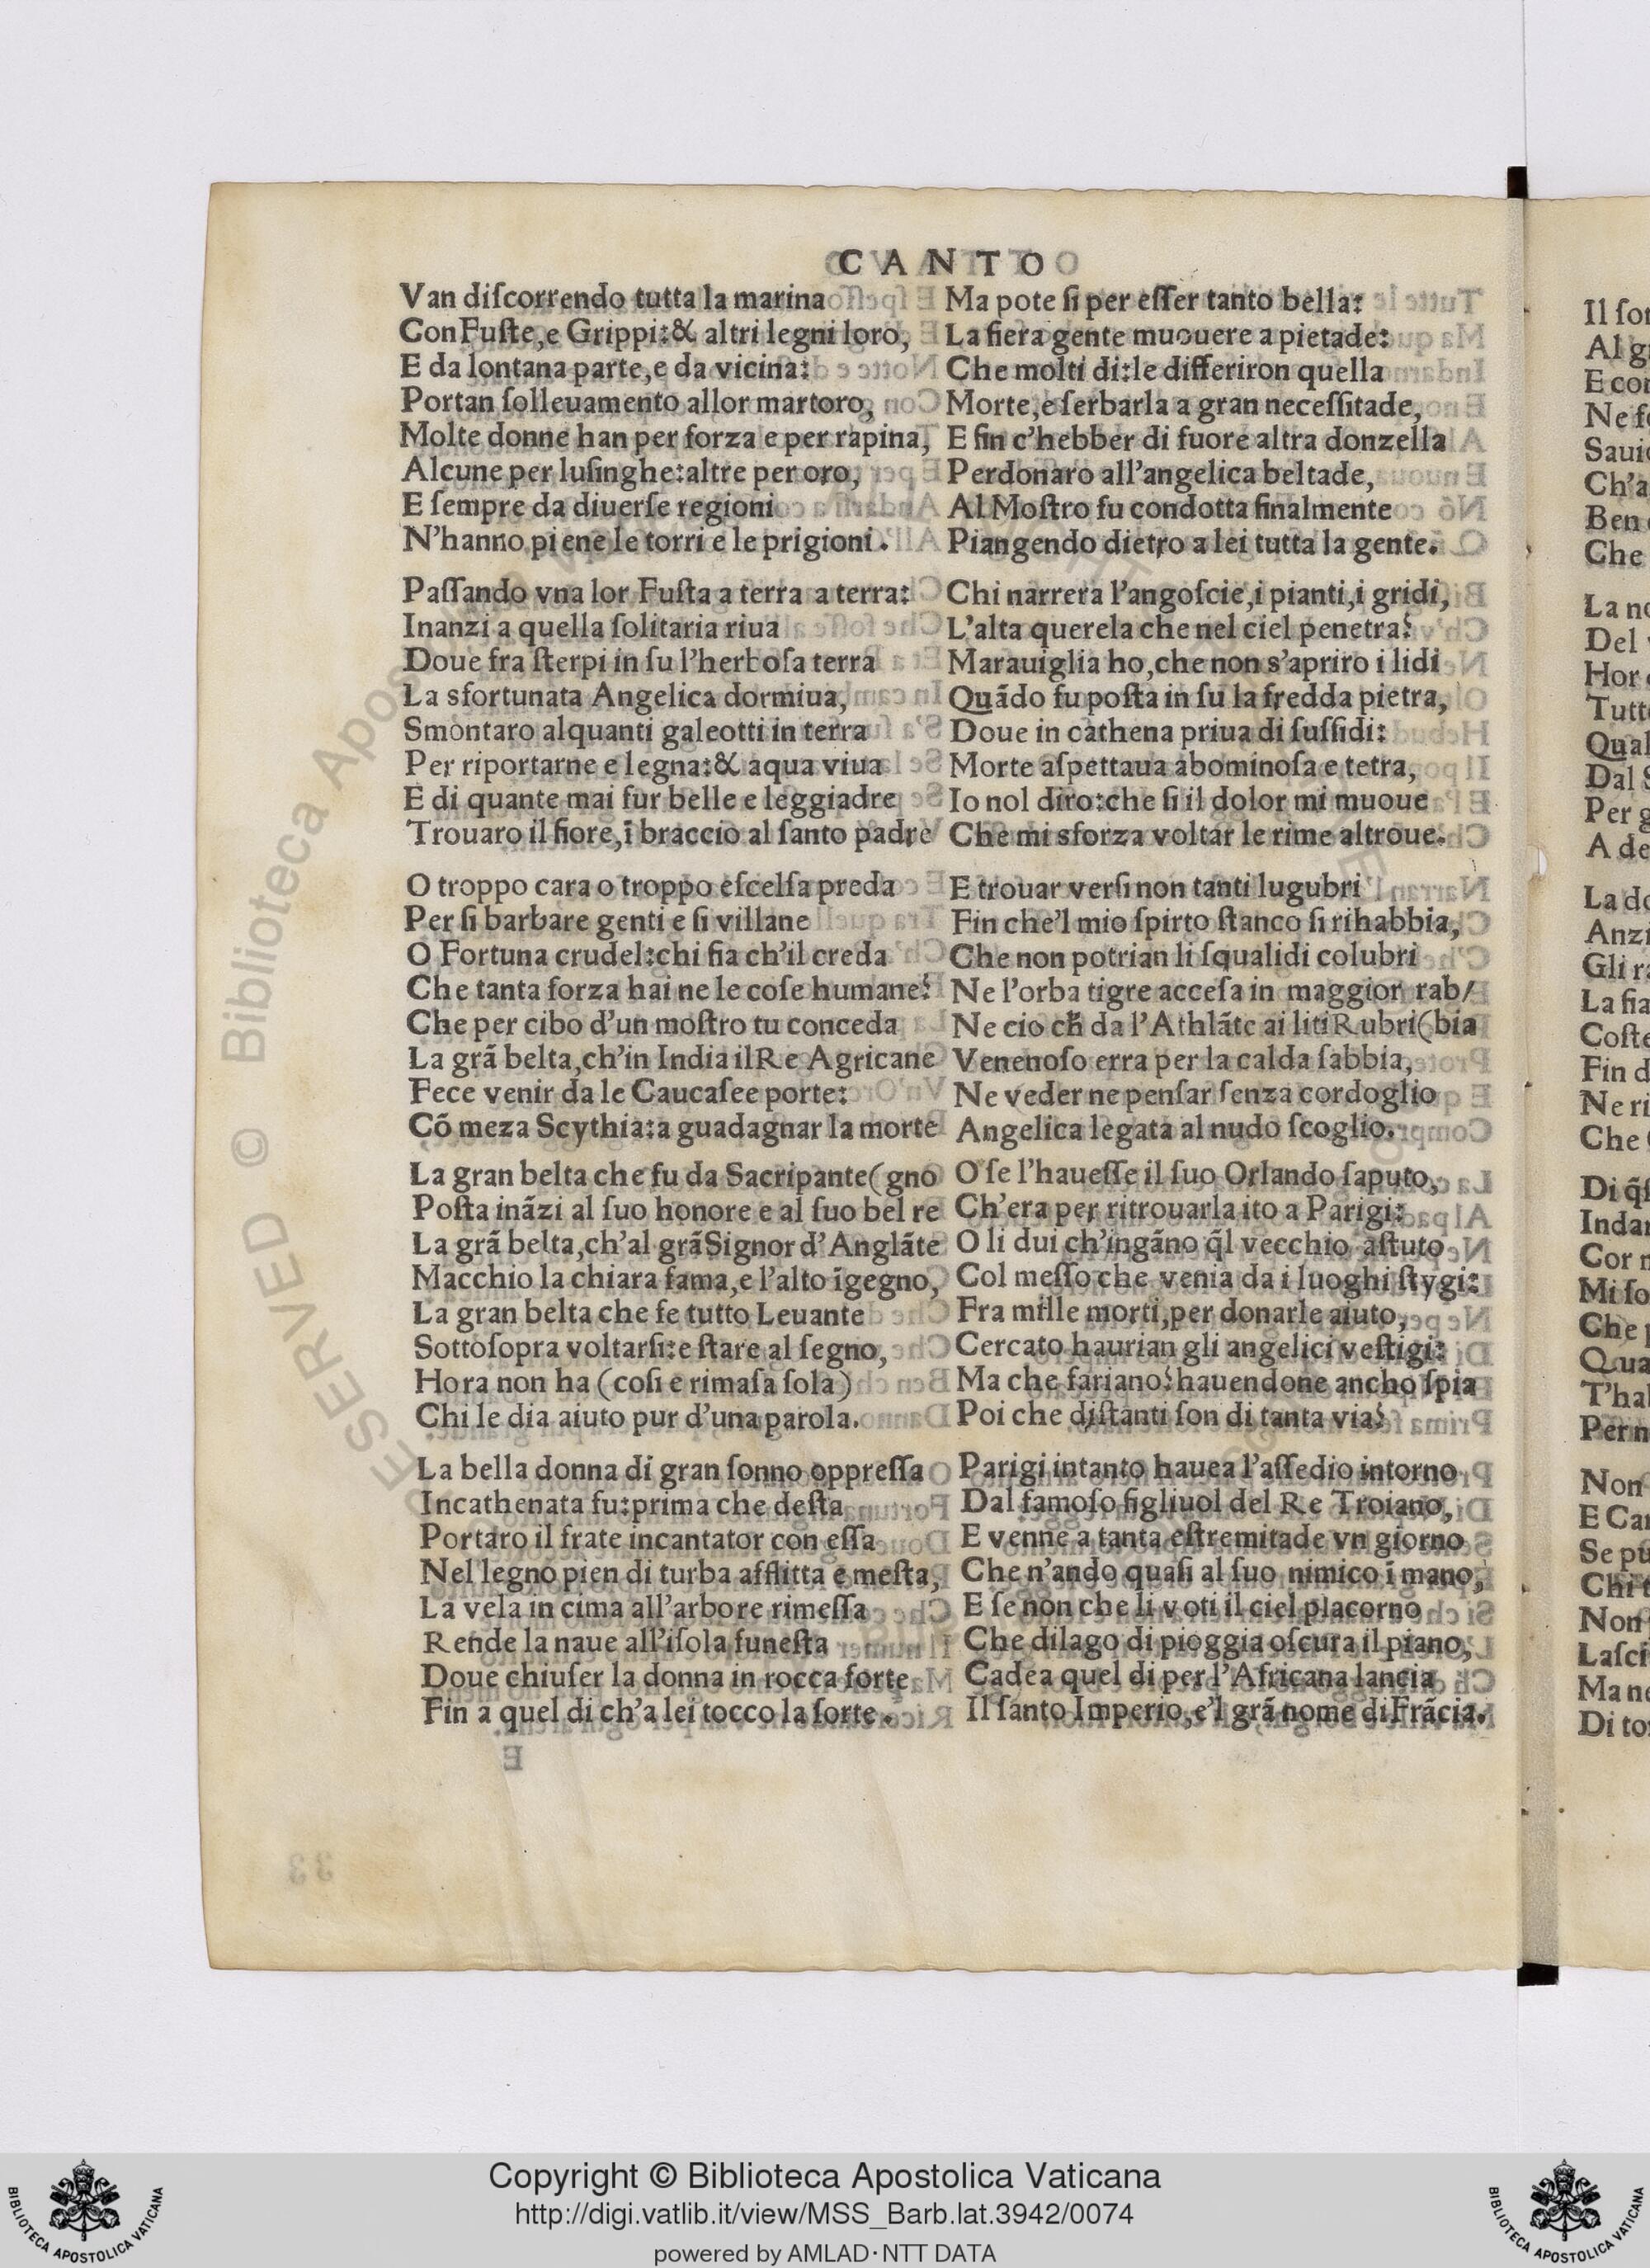 CANTO
Van diſcorrendo tutta la marina
Con Fuſte,e Grippi:& altri legni loro,
E da lontana parte,e da vicina:
Portan ſolleuamento allor martoro,
Molte donne han per forza e per rapina,
Alcune per luſinghe:altre per oro,
E ſempre da diuerſe regioni
N'hanno piene le torri e le prigioni.
Paſſando vna lor Fuſta a terra a terra:
Inanzi a quella ſolitaria riua
Doue fra ſterpi in ſu l'herboſa terra
La sfortunata Angelica dormiua,
Smontaro alquanti galeotti in terra
Per riportarne e legna:& aqua viua
E di quante mai fur belle e leggiadre
Trouaro il fiore,ī braccio al ſanto padre
O troppo cara o troppo eſcelſa preda
Per ſi barbare genti e ſi villane
O Fortuna crudel:chi fia ch'il creda
Che tanta forza hai ne le coſe humane?
Che per cibo d'un moſtro tu conceda
La grā belta,ch'in India il Re Agricane
Fece venir da le Caucaſee porte:
Cō meza Scythia:a guadagnar la morte
La gran belta che fu da Sacripante(gno
Poſta ināzi al ſuo honore e al ſuo bel re
La grā belta,ch'al grā Signor d'Anglāte
Macchio la chiara fama,e l'alto īgegno,
La gran belta che fe tutto Leuante
Sottoſopra voltarſi:e ſtare al ſegno,
Hora non ha (coſi e rimaſa ſola)
Chi le dia aiuto pur d'una parola.
La bella donna di gran ſonno oppreſſa
Incathenata fu:prima che deſta
Portaro il frate incantator con eſſa
Nel legno pien di turba afflitta e meſta,
La vela in cima all'arbore rimeſſa
Rende la naue all'iſola funeſta
Doue chiuſer la donna in rocca forte
Fin a quel di ch'a lei tocco la ſorte.
Ma pote ſi per eſſer tanto bella:
La fiera gente muouere a pietade:
Che molti di:le differiron quella
Morte,e ſerbarla a gran neceſſitade,
E fin c'hebber di fuore altra donzella
Perdonaro all'angelica beltade,
Al Moſtro fu condotta finalmente
Piangendo dietro a lei tutta la gente.
Chi narrera l'angoſcie,i pianti,i gridi,
L'alta querela che nel ciel penetra?
Marauiglia ho,che non s'apriro i lidi
Quādo fu poſta in ſu la fredda pietra,
Doue in cathena priua di ſuſſidi:
Morte aſpettaua abominoſa e tetra,
Io nol diro:che ſi il dolor mi muoue
Che mi sforza voltar le rime altroue.
E trouar verſi non tanti lugubri
Fin che'l mio ſpirto ſtanco ſi rihabbia,
Che non potrian li ſqualidi colubri
Ne l'orba tigre acceſa in maggior rab/
Ne cio ch̄ da l'Athlāte ai liti Rubri(bia
Venenoſo erra per la calda ſabbia,
Ne veder ne penſar ſenza cordoglio
Angelica legata al nudo ſcoglio.
O ſe l'haueſſe il ſuo Orlando ſaputo,
Ch'era per ritrouarla ito a Parigi:
O li dui ch'ingāno q̄l vecchio aſtuto
Col meſſo che venia da i luoghi ſtygi:
Fra mille morti,per donarle aiuto,
Cercato haurian gli angelici veſtigi:
Ma che fariano?hauendone ancho ſpia
Poi che diſtanti ſon di tanta via?
Parigi intanto hauea l'aſſedio intorno
Dal famoſo figliuol del Re Troiano,
E venne a tanta eſtremitade vn giorno
Che n'ando quaſi al ſuo nimico ī mano,
E ſe non che li voti il ciel placorno
Che dilago di pioggia oſcura il piano,
Cadea quel di per l'Africana lancia
Il ſanto Imperio,e'l grā nome di Frācia.
Copyright © Biblioteca Apostolica Vaticana
http://digi.vatlib.it/view/MSS_Barb.lat.3942/0074
powered by AMLAD·NTT DATA